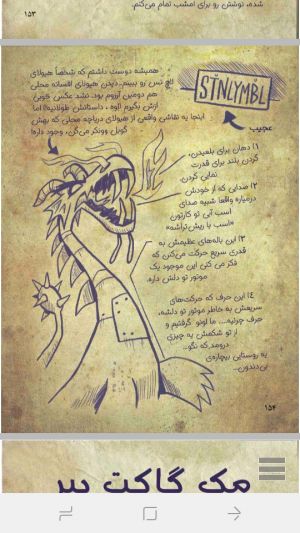 شده، نوشتن رو برای امشب تمام می‌کنم.
۱۵۳
STNLYMBL
عجیب
همیشه دوست داشتم که شخصاً هیولای
لاچ نس رو ببینم. دیدن هیولای افسانه محلی
هم دومین آرزوم بود. نشد عکس خوبی
ازش بگیرم (اوه، داستانش طولانیه)! اما
اینجا یه نقاشی واقعی از هیولای دریاچه محلی که بهش
گوبل وونکر می‌گن، وجود داره!
۱) دهان برای بلعیدن،
گردن بلند برای قدرت
نمایی کردن.
۲) صدایی که از خودش
درمیاره واقعا شبیه صدای
اسب آبی تو کارتون
«اسب با ریش‌تراشه»
۳) این باله‌های عظیمش به
قدری سریع حرکت می‌کنن که
فکر می کنی این موجود یک
موتور تو دلش داره.
۴) این حرف که حرکت‌های
سریعش به خاطر موتور تو دلشه،
حرف چرتیه... ما اونو گرفتیم و
از تو شکمش یه چیزی
درومد که نگو...
یه روستایی بیچاره‌ی
بی‌دندون...
۱۵۴
مک گاکت پیر